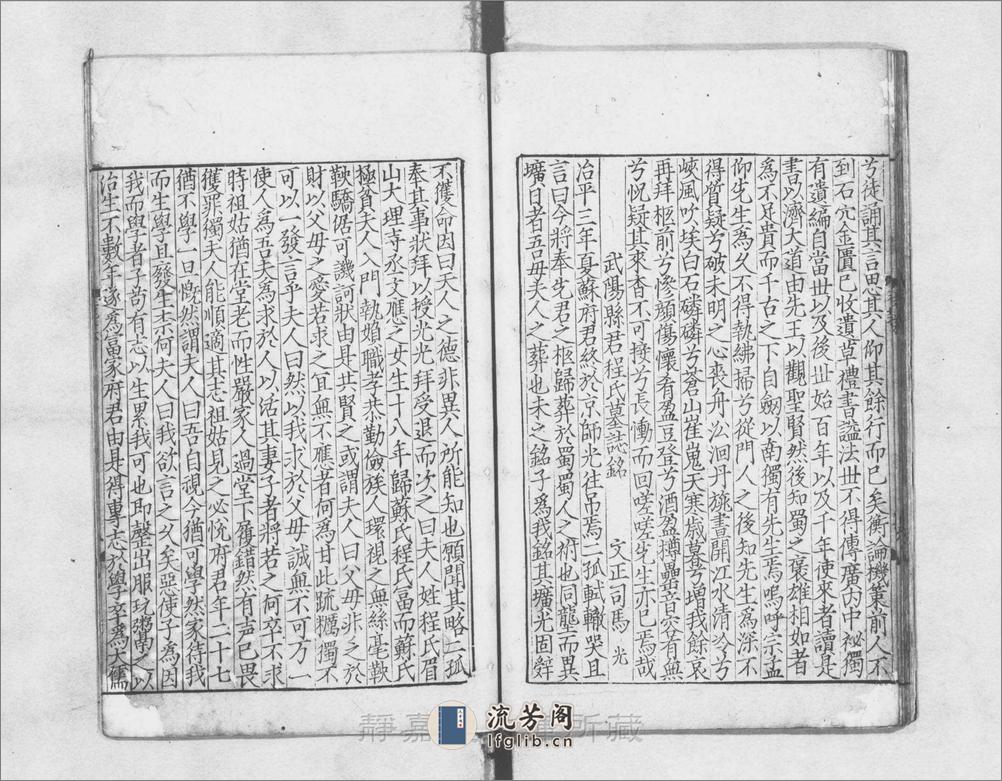 兮徒誦其言思其人仰其餘行而已矣衡論機策前人不
到石穴金匱已收遺草禮書諡法世不得傳廣內中祕獨
有遺編自當世以及後世始百年以及千年使來者讀是
書以濟大道由先王以觀聖賢然後知蜀之褒雄相如者
為不足貴而千古之下自翱以南獨有先生焉嗚呼宗孟
仰先生為久不得執紼掃兮從門人之後知先生為深不
得質疑兮破未明之心喪舟泝洄丹旐晝開江水清冷兮
峽風吹埃白石磷磷兮蒼山崔嵬天寒歲暮兮增我餘哀
再拜柩前兮慘顏傷懷肴盈豆登兮酒盈樽罍音容有無
兮怳疑其來杳不可接兮長慟而回嗟嗟先生亦已焉哉
武陽縣君程氏墓誌銘
文正司馬 光
治平三年夏蘇府君終於京師光往弔焉二孤軾轍哭且
言曰今將奉先君之柩歸葬於蜀蜀人之祔也同龍而異
壙日者吾母夫人之葬也未之銘子為我銘其壙光固辤
不獲命因曰夫人之德非異人所能知也願聞其略二孤
奉其事狀拜以授光光拜受退而次之曰夫人姓程氏眉
山大理寺丞文應之女生十八年歸蘇氏程氏富而蘇氏
極貧夫人入門執婦職孝恭勤儉族人環視之無絲毫鞅
鞅驕倨可譏訶狀由是共賢之或謂夫人曰父母非乏於
財以父母之愛若求之宜無不應者何為甘此蔬糲獨不
可以一發言乎夫人曰然以我求於父母誠無不可万一
使人為吾夫為求於人以活其妻子者將若之何卒不求
時祖姑猶在堂老而性嚴家人過堂下履錯然有声已畏
獲罪獨夫人能順適其志祖姑見之必悅府君年二十七
猶不學一日慨然謂夫人曰吾自視今猶可學然家待我
而生學且廢生柰何夫人曰我欲言之久矣惡使子為因
我而學者子苟有志以生累我可也即罄出服玩鬻之以
治生不數年遂為富家府君由是得專志於學卒為大儒
靜嘉 所藏
流芳阁
lfglib.cn